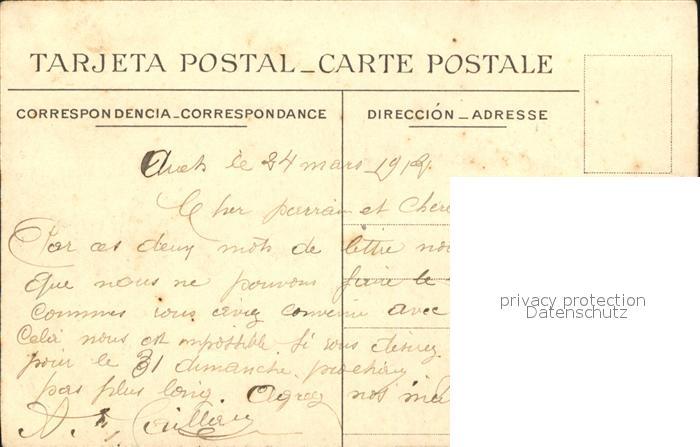 TARJETA POSTAL_CARTE POSTALE
CORRESPONDENCIA_CORRESPONDANCE
DIRECCIÓN _ ADRESSE
le 24 mars 191
Cher parrain et Chère
Par ces deux mots de lettre nou
que nous ne pouvons faire le
commes vous aviez convenu avec
Cela nous est impossible Si vous desirez
pour le 31 dimanche prochain
pas plus long. Agrez nos
privacy protection
Datenschutz